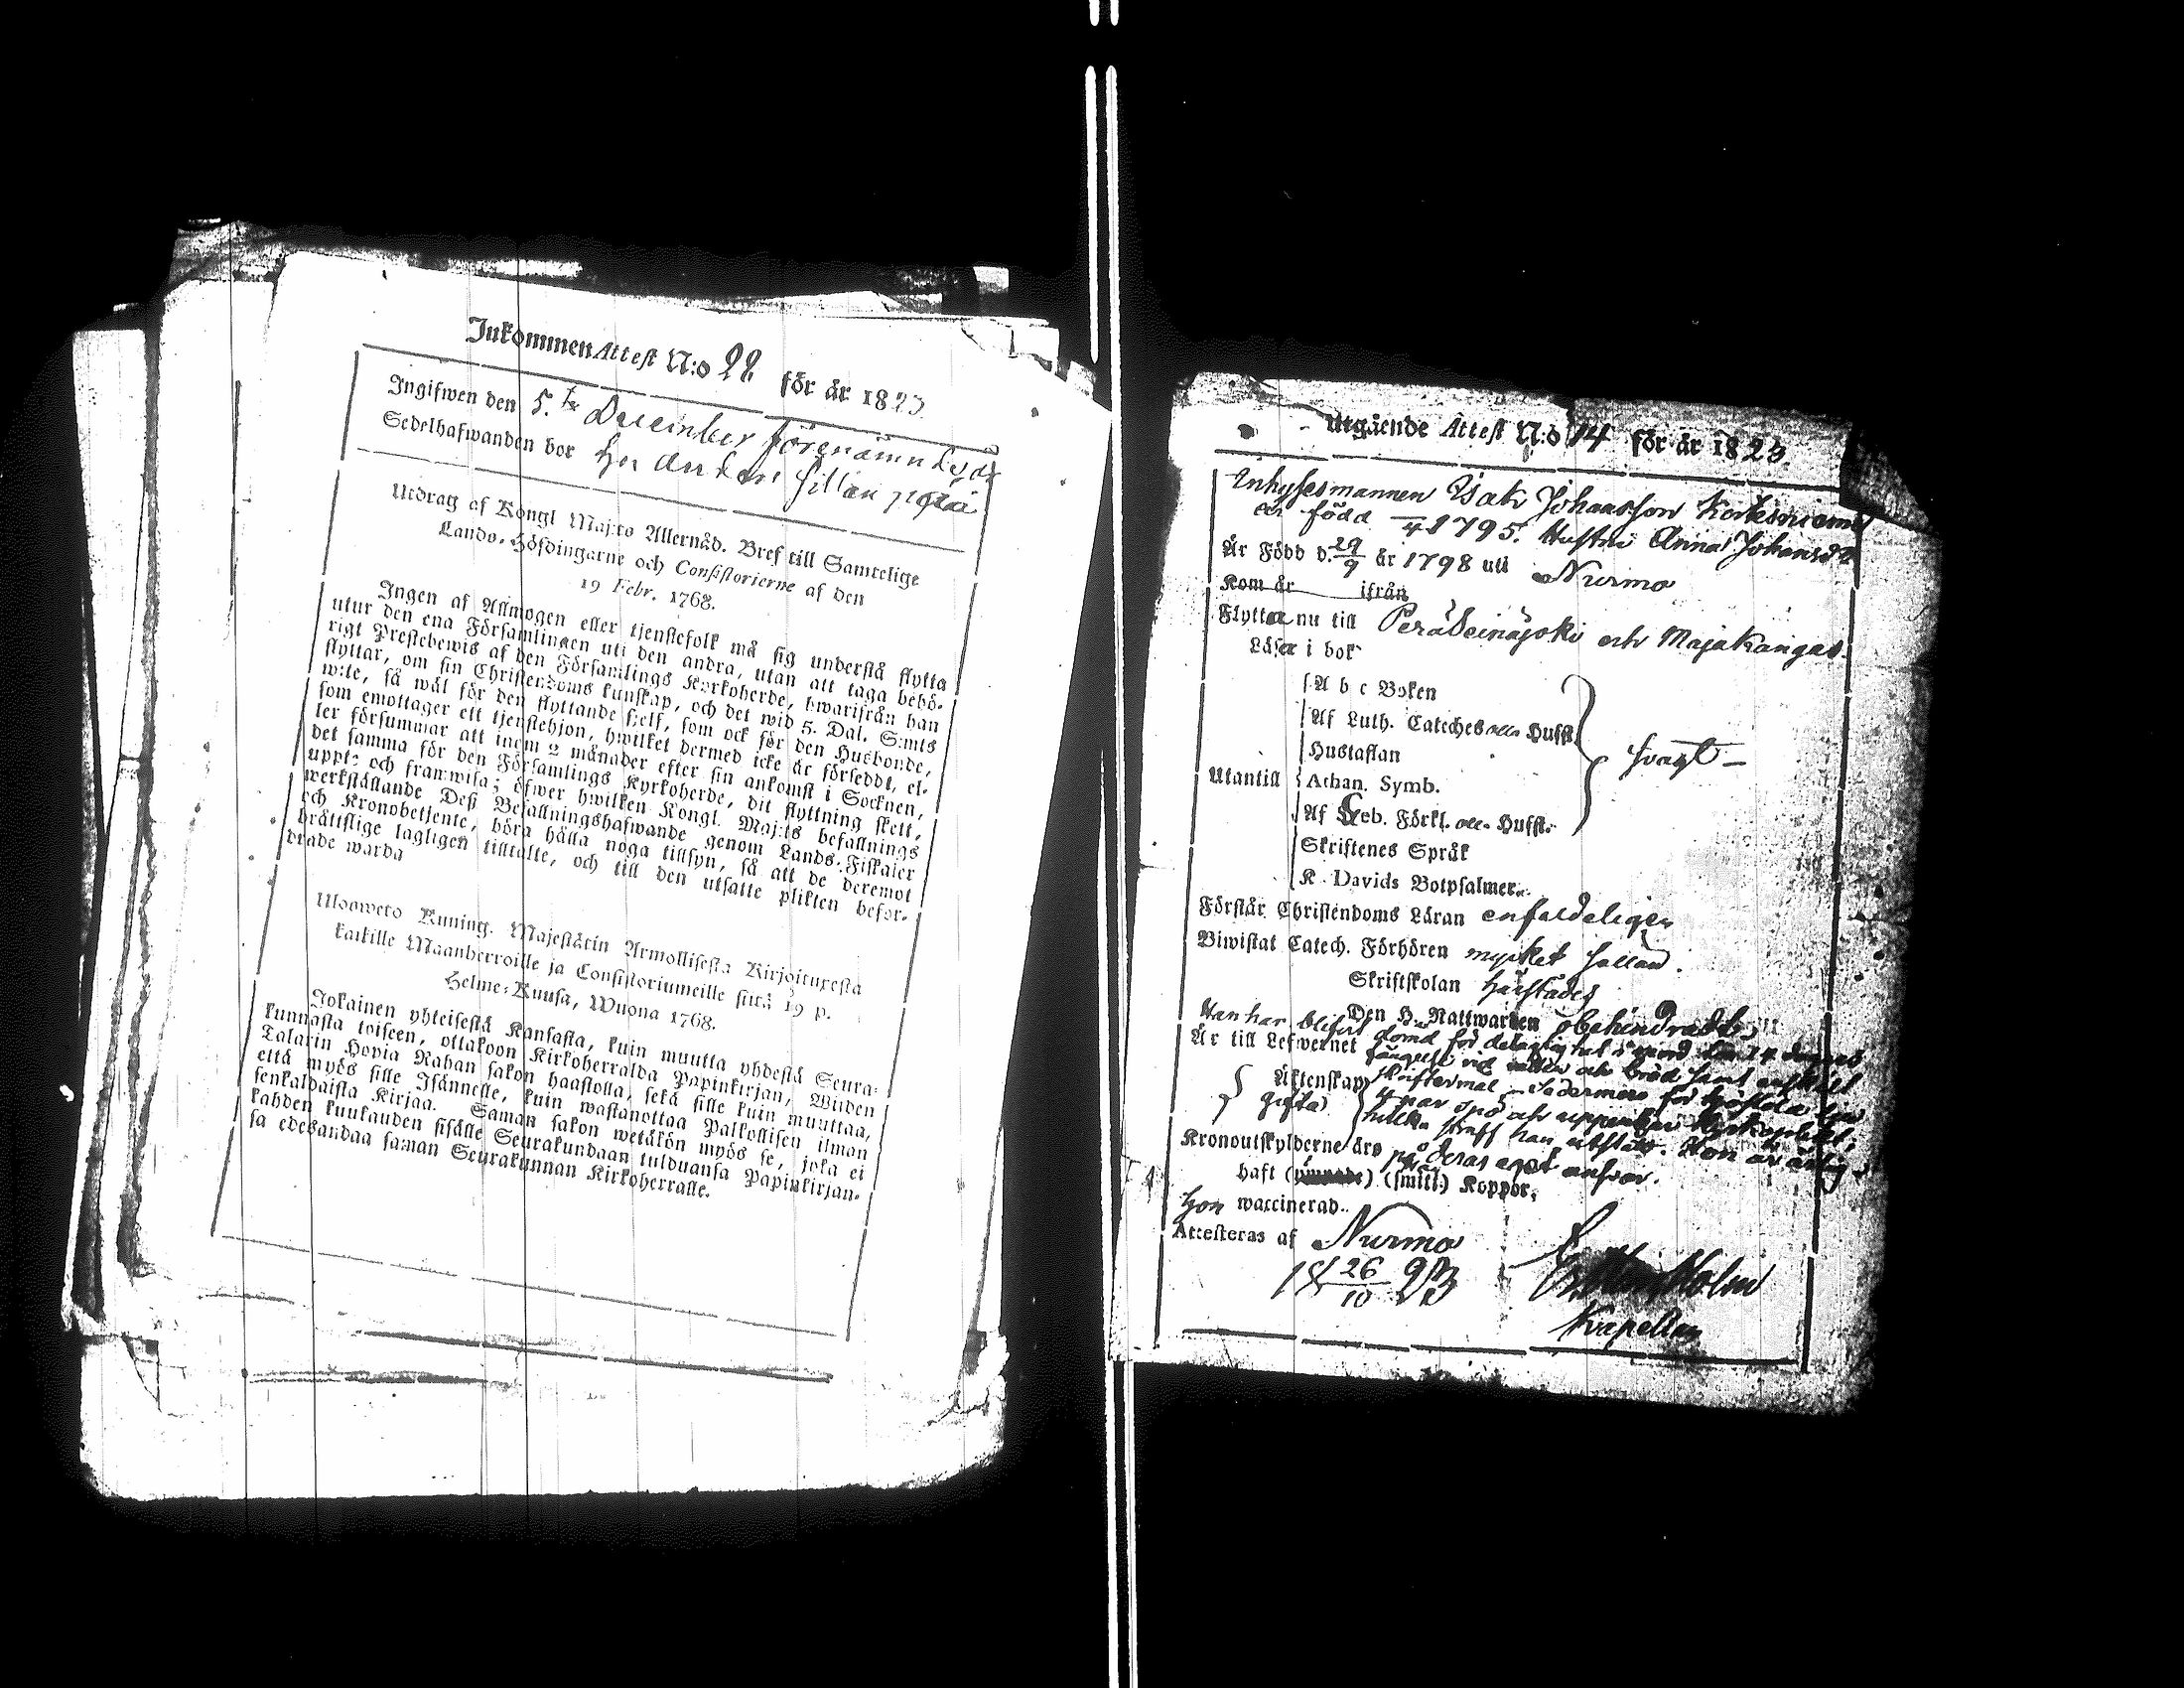 Inkommen Attest N:o 22 för år 1823.
Ingifwen den 5.te December förenämnde år
Sedelhafwanden bor hos Enkan
Utdrag af Kongl Maj:ts Allernåd. Bref till Samtelige
Lands-Höfdingarne och Consistorierne af den
19 Febr. 1768.
Ingen af Allmogen eller tjenstefolk må sig understå flytta
utur den ena Församlingen uti den andra, utan att taga behö-
rigt Prestebewis af den Församlings Kyrkoherde, hwarifrån han
flyttar, om sin Christendoms kunskap, och det wid 5. Dal. S:mts
wite, så wäl för den flyttande sjelf, som ock för den Husbonde,
som emottager ett tjenstehjon, hwilket dermed icke är försedt, el-
ler försummar att inom 2 månader efter sin ankomst i Socknen,
det samma för den Församlings Kyrkoherde, dit flyttning skett,
uppt- och framwisa; öfwer hwilken Kongl. Maj:ts befallnings
werkställande Deß Befallningshafwande genom Lands-Fiskaler
och Kronobetjente, böra hålla noga tillsyn, så att de deremot
brättslige lagligen tilltalte, och till den utsatte plikten befor-
drade warda
Ulosweto Kuning. Majestätin Armollisesta Kirjoituxesta
kaikille Maanherroille ja Consistoriumeille siitä 19 p.
Helme-Kuusa, Wuona 1768.
Jokainen yhteisestä Kansasta, kuin muutta yhdestä Seura-
kunnasta toiseen, ottakoon Kirkoherralda Papinkirjan, Wiiden
Talarin Hopia Rahan sakon haastolla, sekä sille kuin muuttaa,
että myös sille Isännelle, kuin wastanottaa Palkollisen ilman
senkaldaista Kirjaa. Saman sakon wetäkön myös se, joka ei
kahden kuukauden sisälle Seurakundaan tulduansa Papinkirjan-
sa edesandaa saman Seurakunnan Kirkoherralle.
Utgående Attest N:o 14 för år 1823.
Inhysesmannen Isak Johansson
är född 4 1795. Hustru Anna Johansdr
Är Född d. 29/9 år 1798 uti Nurmo
Kom år ifrån
Flytta nu till Peräseinäjoki och Majakangas.
Läsa i bok
A b c Boken
Af Luth. Cateches
Hustaflan
Utantill Athan. Symb.
Af Förkl.
Skriftenes Språk
K. Davids Botpsalmer
svagt
Förstår Christendoms Läran enfaldeligen
Biwistat Catech. Förhören mycket sällan.
Skriftskolan härstädes
Den H. Nattwarden obehindrade
Han har blifvit dömd för delaktighet i mord
Är till Lefwernet fängelse vid vatten och bröd samt
Äktenskap skriftermål
gifta 4 par spö och uppenbar
hvilka straff han utstått. Hon är ärlig
Kronoutskylderne äro på deras eget ansvar.
haft (smitt.) Koppor,
hon waccinerad.
Attesteras af Nurmo
18 26/10 23
Holm
Kapellan